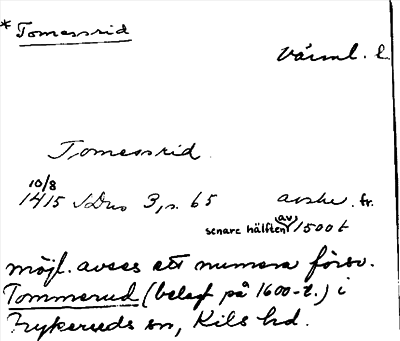 * Tomessrid
Värml. l.
Tomessrid
10/8
1415 SDns 3, s. 65 avskr. fr.
senare hälften av 1500 t
möjl. avses ett numera försv.
Tommerud (belagt på 1600-t.) i
Frykeruds sn, Kils hd.